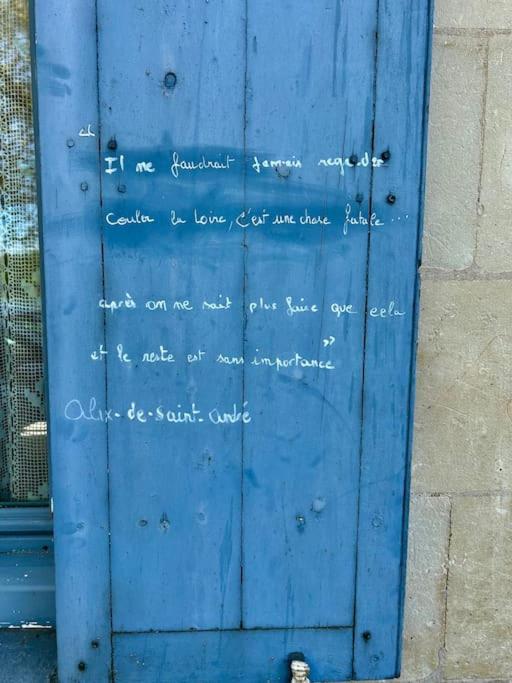 " Il ne faudrait jamais regarder
couler la Loire, c'est une chose fatale...
après on ne sait plus faire que cela
et le reste est sans importance"
Alix-de-saint-andré